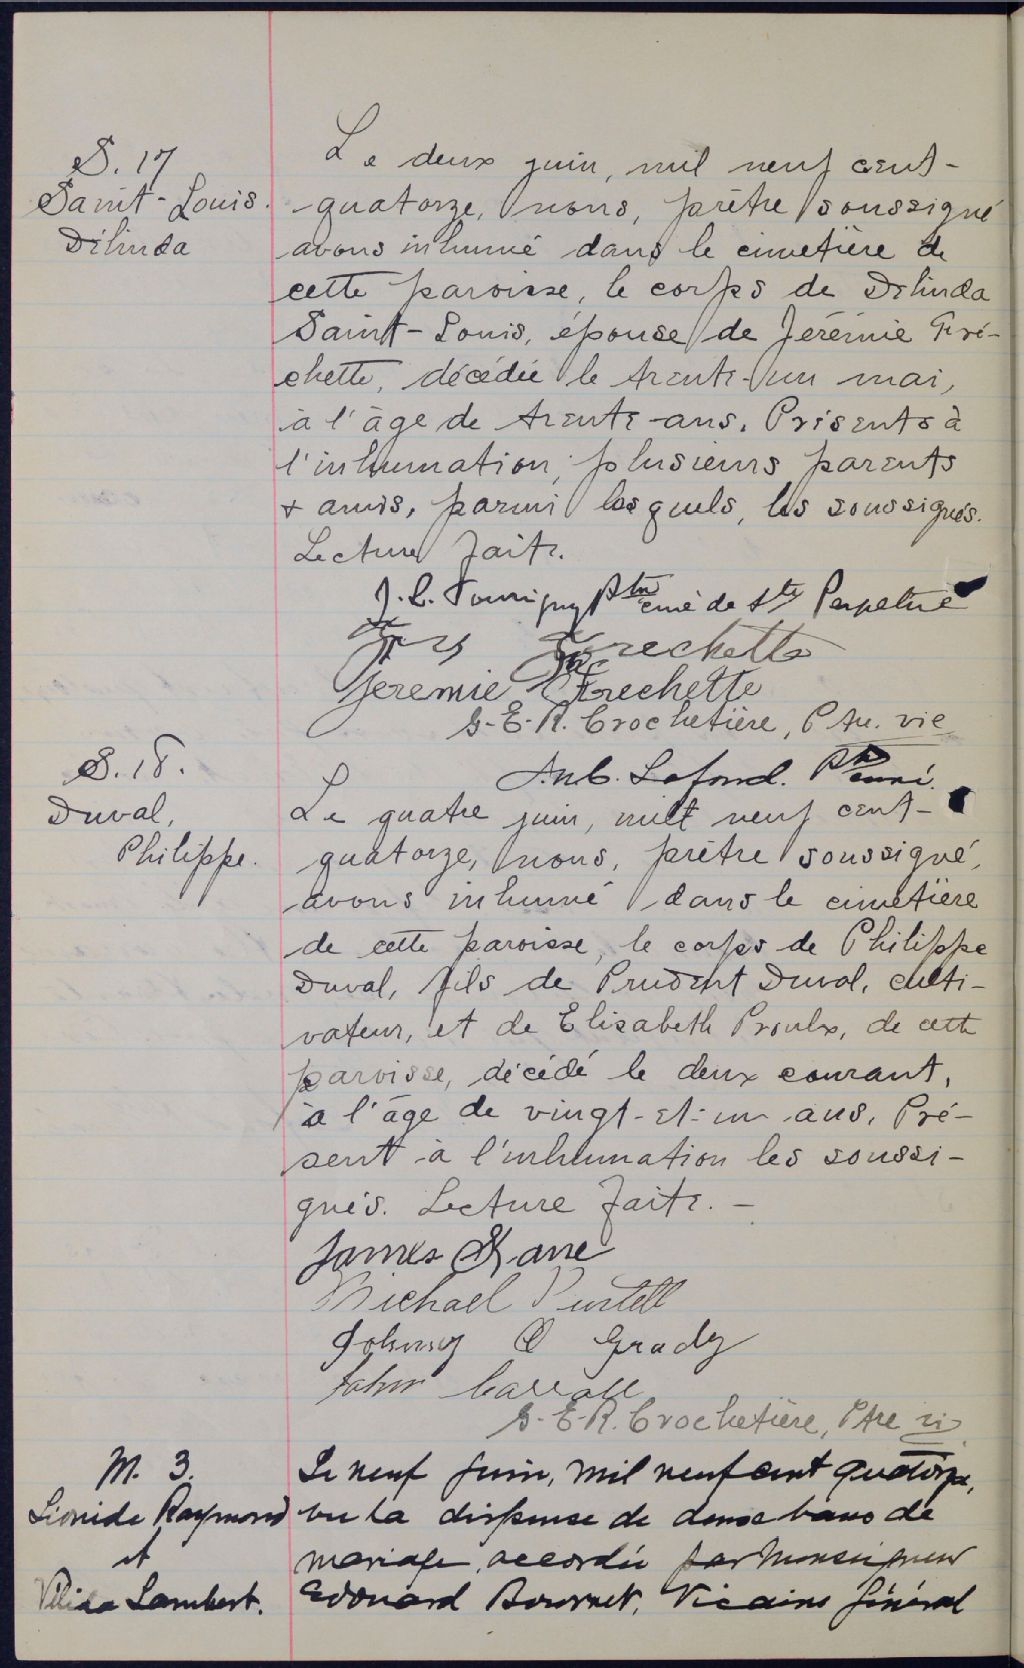 S. 17
Saint-Louis.
Délinda
Le deux juin, mil neuf cent-
quatorze, nous, prêtre soussigné
avons inhumé dans le cimetière de
cette paroisse, le corps de Délinda
Saint-Louis, épouse de Jérémie Fré-
chette, décédée le trente-un mai,
à l'âge de trente-ans. Présents à
l'inhumation, plusieurs parents
+ amis, parmi lesquels, les soussignés.
Lecture faite.
J. C. Tourigny Ptre curé de Ste Perpetue
Frechette
Jeremie Frechette
G.-E.-R. Crochetière, Ptre. vic
Lafond. Ptre curé.
S. 18.
Duval,
Philippe.
Le quatre juin, mill neuf cent-
quatorze, nous, prêtre soussigné,
avons inhumé dans le cimetière
de cette paroisse, le corps de Philippe
Duval, fils de Prudent Duval, culti-
vateur, et de Elisabeth Proulx, de cette
paroisse, décédé le deux courant,
à l'âge de vingt-et-un ans. Pré-
sent à l'inhumation les soussi-
gnés. Lecture faite. -
James Kane
Michael Purtell
Johnny O Grady
John Carroll
G.-E-R. Crochetière, Ptre vic
M. 3.
Léonide Raymond
et
Lambert.
Le neuf juin, mil neuf cent quatorze,
vu la dispense de deux bans de
mariage accordée par Monseigneur
Edouard Vicaire Général